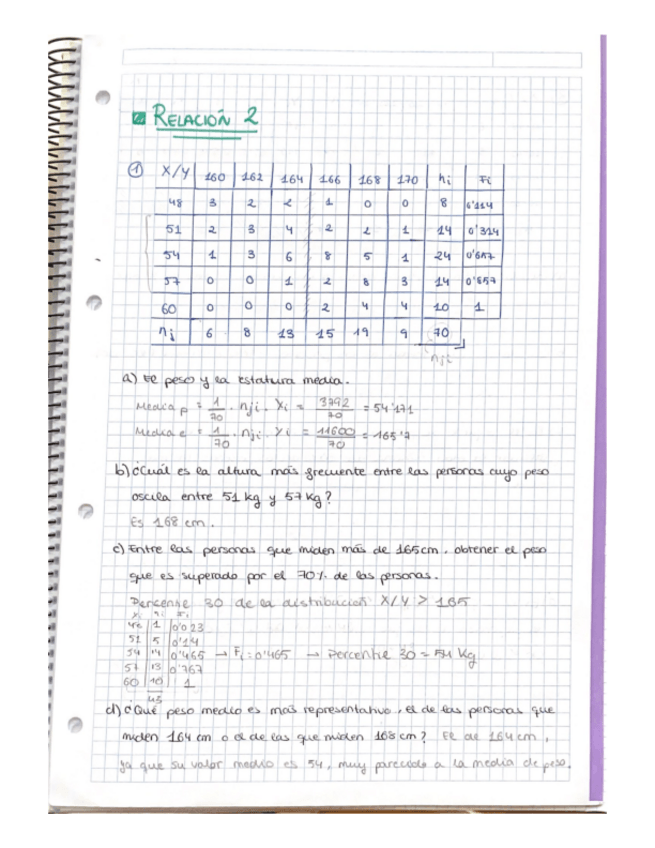 RELACIÓN 2
① X/Y 160 162 164 166 168 170 ni Fi
48 3 2 2 1 0 0 8 0'114
51 2 3 4 2 2 1 14 0'314
54 1 3 6 8 5 1 24 0'657
57 0 0 1 2 8 3 14 0'857
60 0 0 0 2 4 4 10 1
nj 6 8 13 15 19 9 70
nji
a) El peso y la estatura media.
Media p = 1/70 · nji · Xi = 3792/70 = 54'171
Media e = 1/70 · nji · Yi = 11600/70 = 165'7
b) ¿Cuál es la altura más frecuente entre las personas cuyo peso
oscila entre 51 kg y 57 kg?
Es 168 cm.
c) Entre las personas que miden más de 165cm. obtener el peso
que es superado por el 70% de las personas.
Percentil 30 de la distribución X/Y > 165
xi ni Fi
48 1 0'023
51 5 0'14
54 14 0'465 → Fi = 0'465 → Percentil 30 = 54 Kg
57 13 0'767
60 10 1
43
d) ¿Qué peso medio es más representativo, el de las personas que
miden 164 cm o el de las que miden 168 cm? El de 164 cm,
ya que su valor medio es 54, muy parecido a la media de peso.